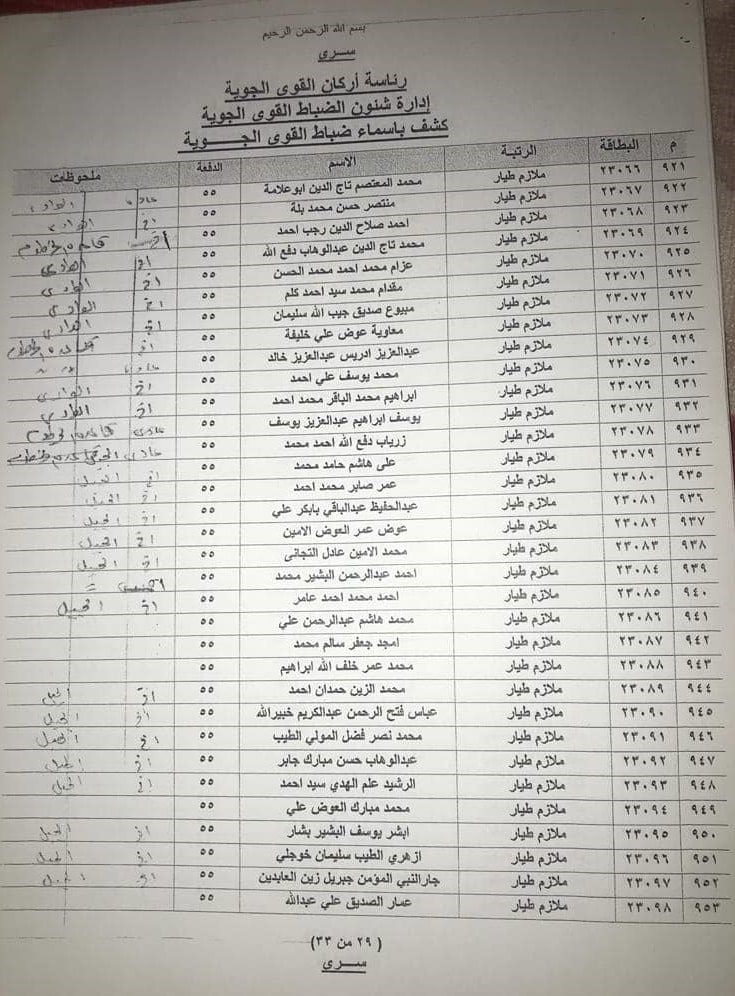 بسم الله الرحمن الرحيم
سري
رئاسة أركان القوى الجوية
إدارة شئون الضباط القوى الجوية
كشف باسماء ضباط القوى الجـــوية
م البطاقة الرتبة الاسم الدفعة ملحوظات
٩٢١ ٢٣٠٦٦ ملازم طيار محمد المعتصم تاج الدين ابوعلامة ٥٥
٩٢٢ ٢٣٠٦٧ ملازم طيار منتصر حسن محمد بلة ٥٥
٩٢٣ ٢٣٠٦٨ ملازم طيار احمد صلاح الدين رجب احمد ٥٥
٩٢٤ ٢٣٠٦٩ ملازم طيار محمد تاج الدين عبدالوهاب دفع الله ٥٥
٩٢٥ ٢٣٠٧٠ ملازم طيار عزام محمد احمد محمد الحسن ٥٥
٩٢٦ ٢٣٠٧١ ملازم طيار مقدام محمد سيد احمد كلم ٥٥
٩٢٧ ٢٣٠٧٢ ملازم طيار مبيوع صديق جيب الله سليمان ٥٥
٩٢٨ ٢٣٠٧٣ ملازم طيار معاوية عوض علي خليفة ٥٥
٩٢٩ ٢٣٠٧٤ ملازم طيار عبدالعزيز ادريس عبدالعزيز خالد ٥٥
٩٣٠ ٢٣٠٧٥ ملازم طيار محمد يوسف علي احمد ٥٥
٩٣١ ٢٣٠٧٦ ملازم طيار ابراهيم محمد الباقر محمد احمد ٥٥
٩٣٢ ٢٣٠٧٧ ملازم طيار يوسف ابراهيم عبدالعزيز يوسف ٥٥
٩٣٣ ٢٣٠٧٨ ملازم طيار زرياب دفع الله احمد محمد ٥٥
٩٣٤ ٢٣٠٧٩ ملازم طيار على هاشم حامد محمد ٥٥
٩٣٥ ٢٣٠٨٠ ملازم طيار عمر صابر محمد احمد ٥٥
٩٣٦ ٢٣٠٨١ ملازم طيار عبدالحفيظ عبدالباقي بابكر علي ٥٥
٩٣٧ ٢٣٠٨٢ ملازم طيار عوض عمر العوض الامين ٥٥
٩٣٨ ٢٣٠٨٣ ملازم طيار محمد الامين عادل التجانى ٥٥
٩٣٩ ٢٣٠٨٤ ملازم طيار احمد عبدالرحمن البشير محمد ٥٥
٩٤٠ ٢٣٠٨٥ ملازم طيار احمد محمد احمد عامر ٥٥
٩٤١ ٢٣٠٨٦ ملازم طيار محمد هاشم عبدالرحمن علي ٥٥
٩٤٢ ٢٣٠٨٧ ملازم طيار امجد جعفر سالم محمد ٥٥
٩٤٣ ٢٣٠٨٨ ملازم طيار محمد عمر خلف الله ابراهيم ٥٥
٩٤٤ ٢٣٠٨٩ ملازم طيار محمد الزين حمدان احمد ٥٥
٩٤٥ ٢٣٠٩٠ ملازم طيار عباس فتح الرحمن عبدالكريم خبيرالله ٥٥
٩٤٦ ٢٣٠٩١ ملازم طيار محمد نصر فضل المولي الطيب ٥٥
٩٤٧ ٢٣٠٩٢ ملازم طيار عبدالوهاب حسن مبارك جابر ٥٥
٩٤٨ ٢٣٠٩٣ ملازم طيار الرشيد علم الهدي سيد احمد ٥٥
٩٤٩ ٢٣٠٩٤ ملازم طيار محمد مبارك العوض علي ٥٥
٩٥٠ ٢٣٠٩٥ ملازم طيار ابشر يوسف البشير بشار ٥٥
٩٥١ ٢٣٠٩٦ ملازم طيار ازهري الطيب سليمان خوجلي ٥٥
٩٥٢ ٢٣٠٩٧ ملازم طيار جارالنبي المؤمن جبريل زين العابدين ٥٥
٩٥٣ ٢٣٠٩٨ ملازم طيار عمار الصديق علي عبدالله ٥٥
( ٢٩ من ٣٣)
سري